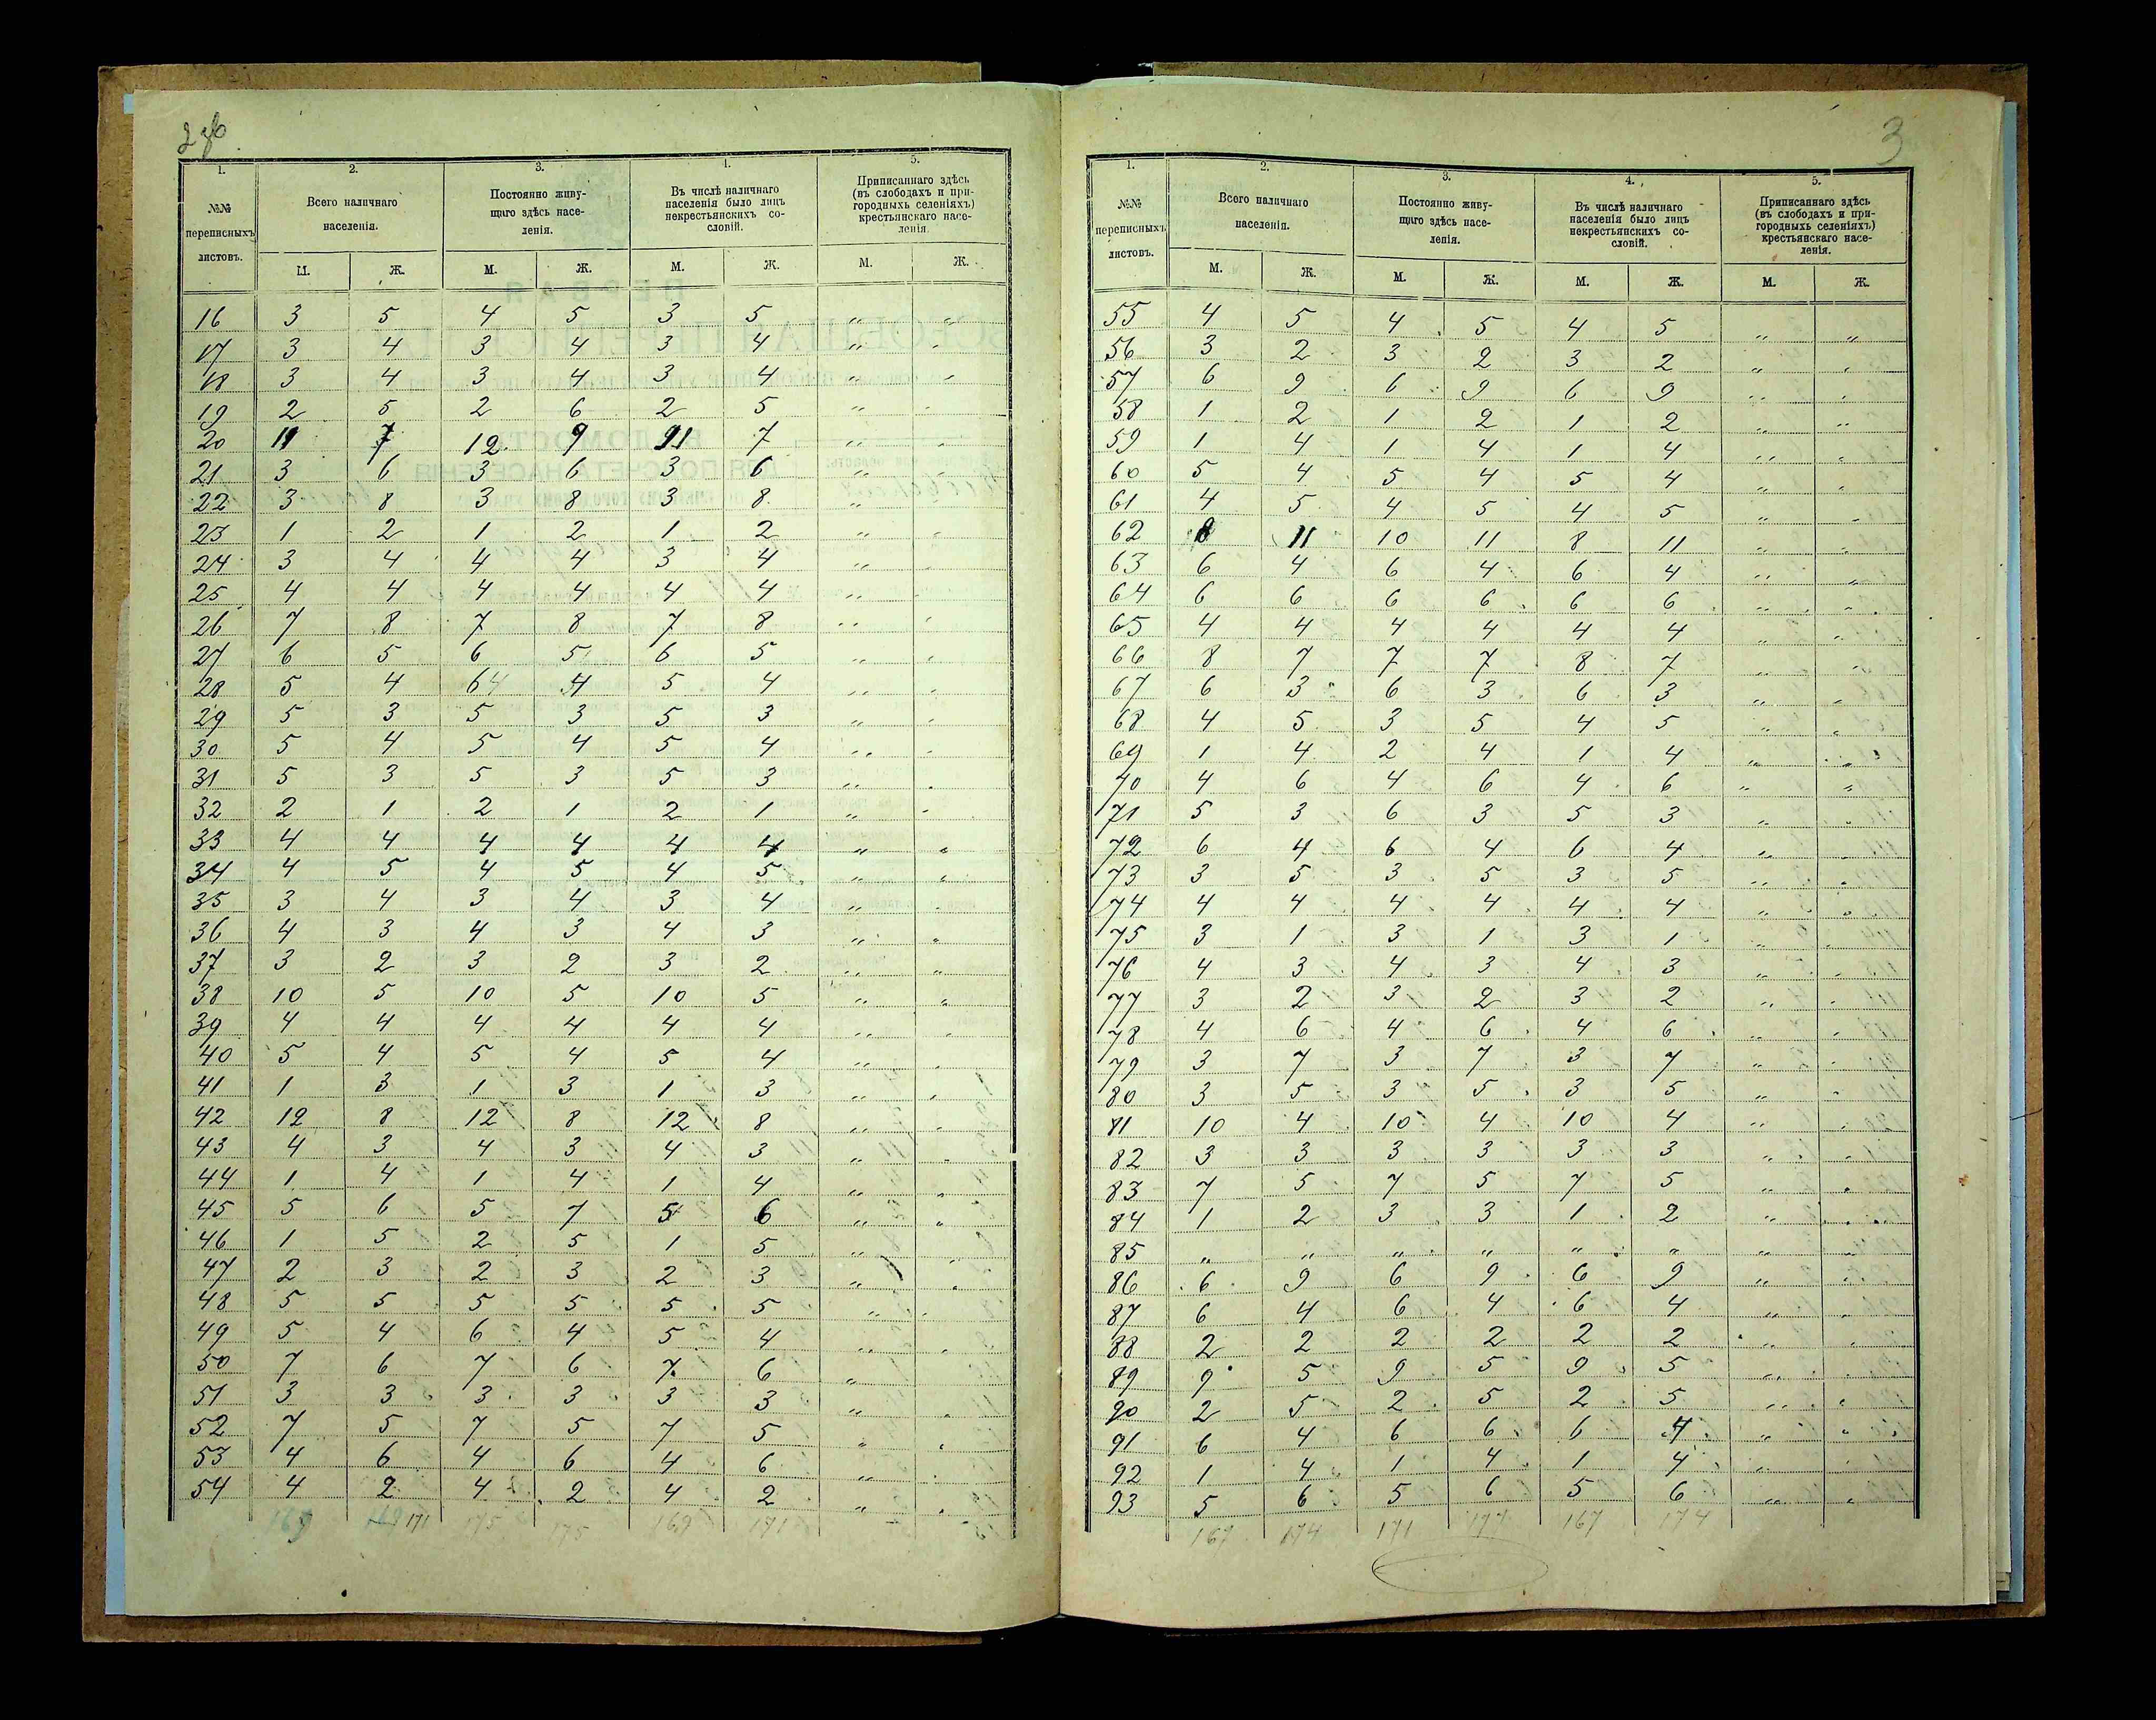 2 об
1. 2. 3. 4. 5.
№№ переписныхъ листовъ.
Всего наличнаго населенія.
Постоянно живущаго здѣсь населенія.
Въ числѣ наличнаго населенія было лицъ некрестьянскихъ сословій.
Приписаннаго здѣсь (въ слободахъ и пригородныхъ селеніяхъ) крестьянскаго населенія.
М. Ж. М. Ж. М. Ж. М. Ж.
16 3 5 4 5 3 5 „ „
17 3 4 3 4 3 4 „ „
18 3 4 3 4 3 4 „ „
19 2 5 2 6 2 5 „ „
20 11 7 12 9 11 7 „ „
21 3 6 3 6 3 6 „ „
22 3 8 3 8 3 8 „ „
23 1 2 1 2 1 2 „ „
24 3 4 4 4 3 4 „ „
25 4 4 4 4 4 4 „ „
26 7 8 7 8 7 8 „ „
27 6 5 6 5 6 5 „ „
28 5 4 64 4 5 4 „ „
29 5 3 5 3 5 3 „ „
30 5 4 5 4 5 4 „ „
31 5 3 5 3 5 3 „ „
32 2 1 2 1 2 1 „ „
33 4 4 4 4 4 4 „ „
34 4 5 4 5 4 5 „ „
35 3 4 3 4 3 4 „ „
36 4 3 4 3 4 3 „ „
37 3 2 3 2 3 2 „ „
38 10 5 10 5 10 5 „ „
39 4 4 4 4 4 4 „ „
40 5 4 5 4 5 4 „ „
41 1 3 1 3 1 3 „ „
42 12 8 12 8 12 8 „ „
43 4 3 4 3 4 3 „ „
44 1 4 1 4 1 4 „ „
45 5 6 5 7 5 6 „ „
46 1 5 2 5 1 5 „ „
47 2 3 2 3 2 3 „ „
48 5 5 5 5 5 5 „ „
49 5 4 6 4 5 4 „ „
50 7 6 7 6 7 6 „ „
51 3 3 3 3 3 3 „ „
52 7 5 7 5 7 5 „ „
53 4 6 4 6 4 6 „ „
54 4 2 4 2 4 2 „ „
169 171 175 175 169 171
3
1. 2. 3. 4. 5.
№№ переписныхъ листовъ.
Всего наличнаго населенія.
Постоянно живущаго здѣсь населенія.
Въ числѣ наличнаго населенія было лицъ некрестьянскихъ сословій.
Приписаннаго здѣсь (въ слободахъ и пригородныхъ селеніяхъ) крестьянскаго населенія.
М. Ж. М. Ж. М. Ж. М. Ж.
55 4 5 4 5 4 5 „ „
56 3 2 3 2 3 2 „ „
57 6 9 6 9 6 9 „ „
58 1 2 1 2 1 2 „ „
59 1 4 1 4 1 4 „ „
60 5 4 5 4 5 4 „ „
61 4 5 4 5 4 5 „ „
62 8 11 10 11 8 11 „ „
63 6 4 6 4 6 4 „ „
64 6 6 6 6 6 6 „ „
65 4 4 4 4 4 4 „ „
66 8 7 7 7 8 7 „ „
67 6 3 6 3 6 3 „ „
68 4 5 3 5 4 5 „ „
69 1 4 2 4 1 4 „ „
70 4 6 4 6 4 6 „ „
71 5 3 6 3 5 3 „ „
72 6 4 6 4 6 4 „ „
73 3 5 3 5 3 5 „ „
74 4 4 4 4 4 4 „ „
75 3 1 3 1 3 1 „ „
76 4 3 4 3 4 3 „ „
77 3 2 3 2 3 2 „ „
78 4 6 4 6 4 6 „ „
79 3 7 3 7 3 7 „ „
80 3 5 3 5 3 5 „ „
81 10 4 10 4 10 4 „ „
82 3 3 3 3 3 3 „ „
83 7 5 7 5 7 5 „ „
84 1 2 3 3 1 2 „ „
85 „ „ „ „ „ „ „ „
86 6 9 6 9 6 9 „ „
87 6 4 6 4 6 4 „ „
88 2 2 2 2 2 2 „ „
89 9 5 9 5 9 5 „ „
90 2 5 2 5 2 5 „ „
91 6 4 6 6 6 4 „ „
92 1 4 1 4 1 4 „ „
93 5 6 5 6 5 6 „ „
167 174 171 177 167 174